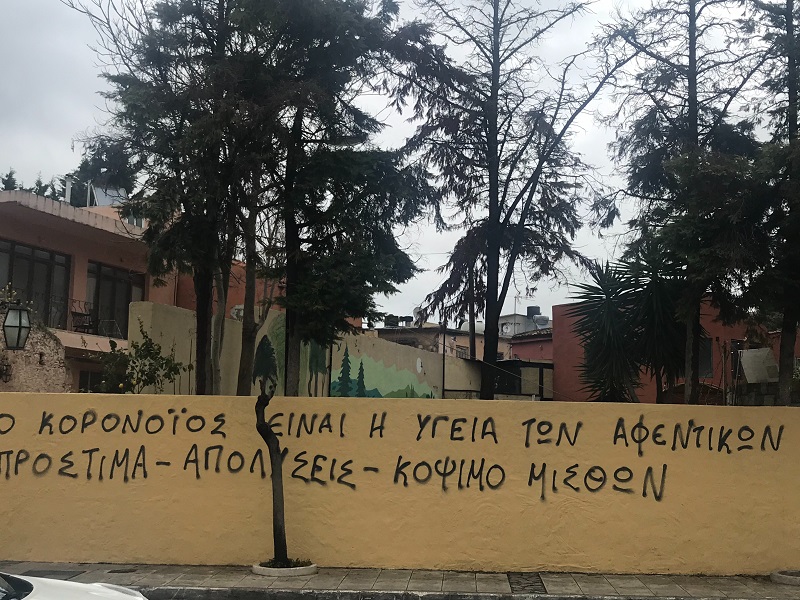 Ο ΚΟΡΟΝΟΪΟΣ ΕΙΝΑΙ Η ΥΓΕΙΑ ΤΩΝ ΑΦΕΝΤΙΚΩΝ
ΠΡΟΣΤΙΜΑ - ΑΠΟΛΥΣΕΙΣ - ΚΟΨΙΜΟ ΜΙΣΘΩΝ